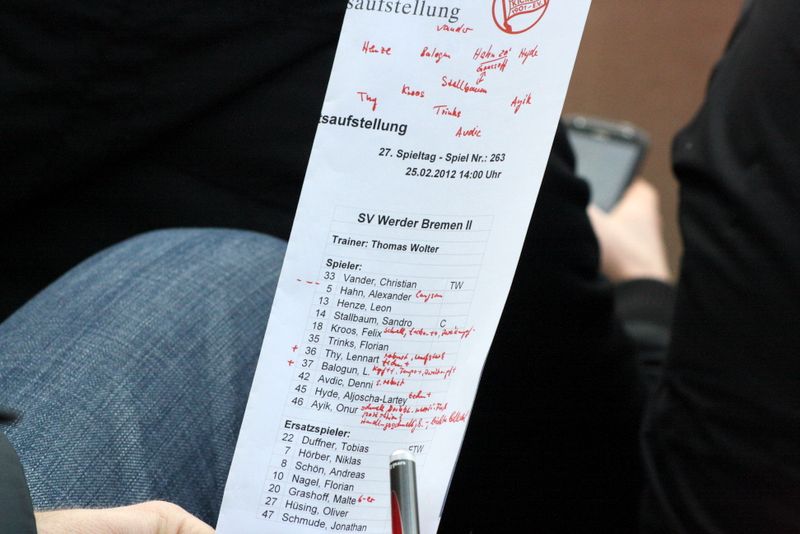 saufstellung
KICKERS
1901 e.V.
Vander
Henze Balogun Hahn 20' Hyde
Grashoff
Stallbaum
Thy Kroos Ayik
Trinks
Avdic
tsaufstellung
27. Spieltag - Spiel Nr.: 263
25.02.2012 14:00 Uhr
SV Werder Bremen II
Trainer: Thomas Wolter
Spieler:
33 Vander, Christian TW
--- 5 Hahn, Alexander langsam
13 Henze, Leon
14 Stallbaum, Sandro C
18 Kroos, Felix schnell, techn ++, zweikampf-
35 Trinks, Florian
+ 36 Thy, Lennart robust
techn +
+ 37 Balogun, L. Kopf ++, Tempo +, zweikampf +
42 Avdic, Denni s. robust
45 Hyde, Aljoscha-Lartey techn +
46 Ayik, Onur schnell
Ersatzspieler:
22 Duffner, Tobias ETW
7 Hörber, Niklas
8 Schön, Andreas
10 Nagel, Florian
20 Grashoff, Malte 6-er
27 Hüsing, Oliver
47 Schmude, Jonathan